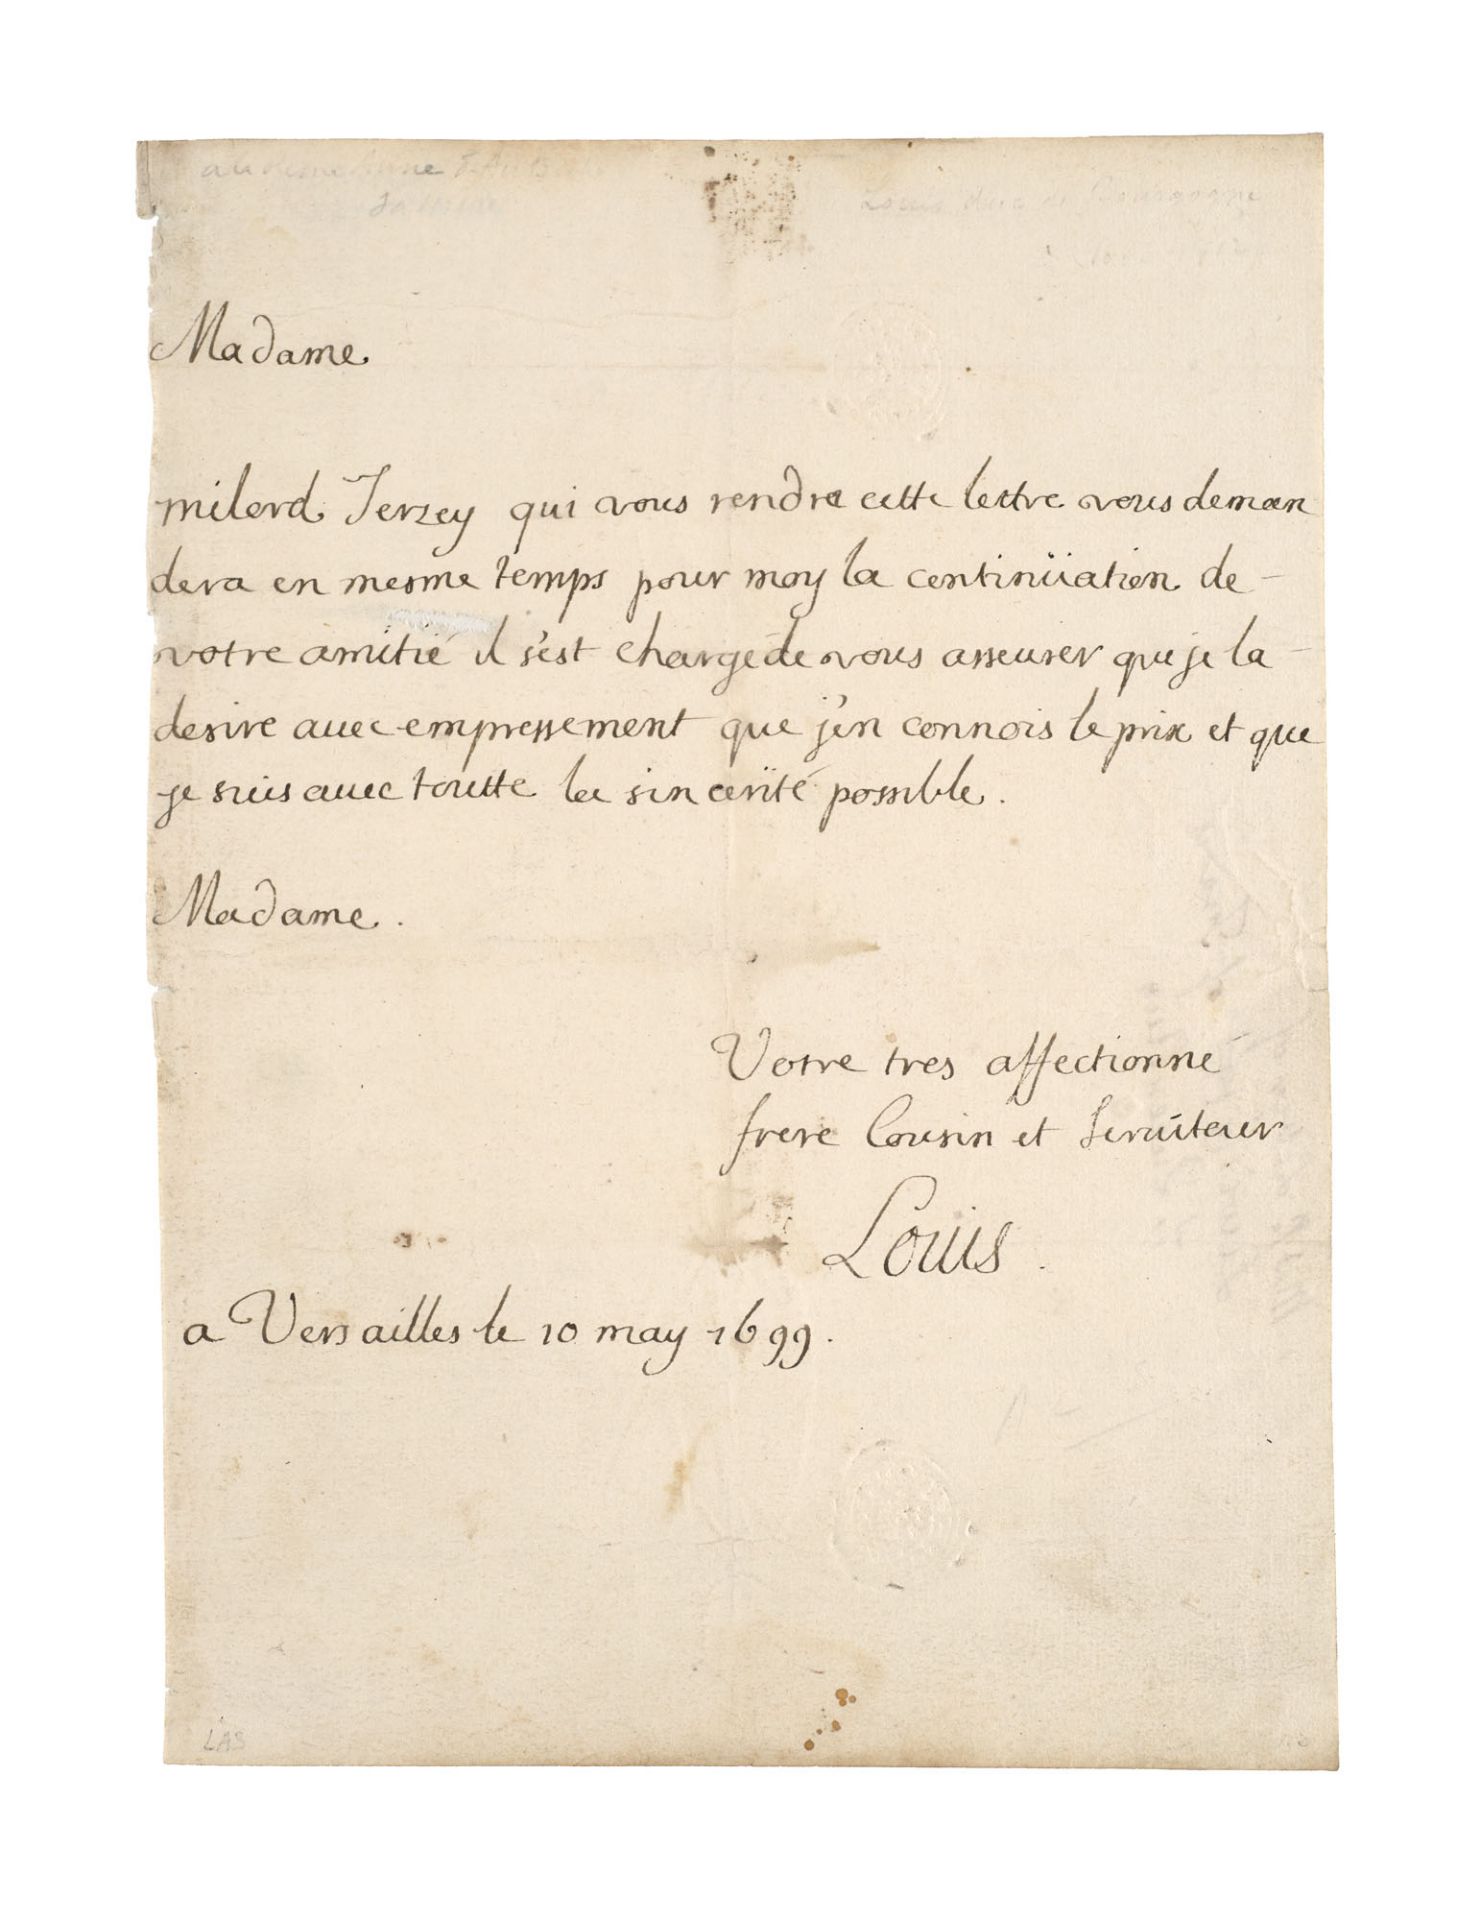 Louis duc de Bourgogne
Madame
milord Jerzey qui vous rendra cette lettre vous deman
dera en mesme temps pour moy la continüation de
votre amitié il s'est chargé de vous asseurer que je la
desire avec empressement que j'en connois le prix et que
je suis avec toutte la sincerité possible.
Madame.
Votre tres affectionné
frere Cousin et Seruiteur
Louis.
a Versailles le 10 may 1699.
LAS